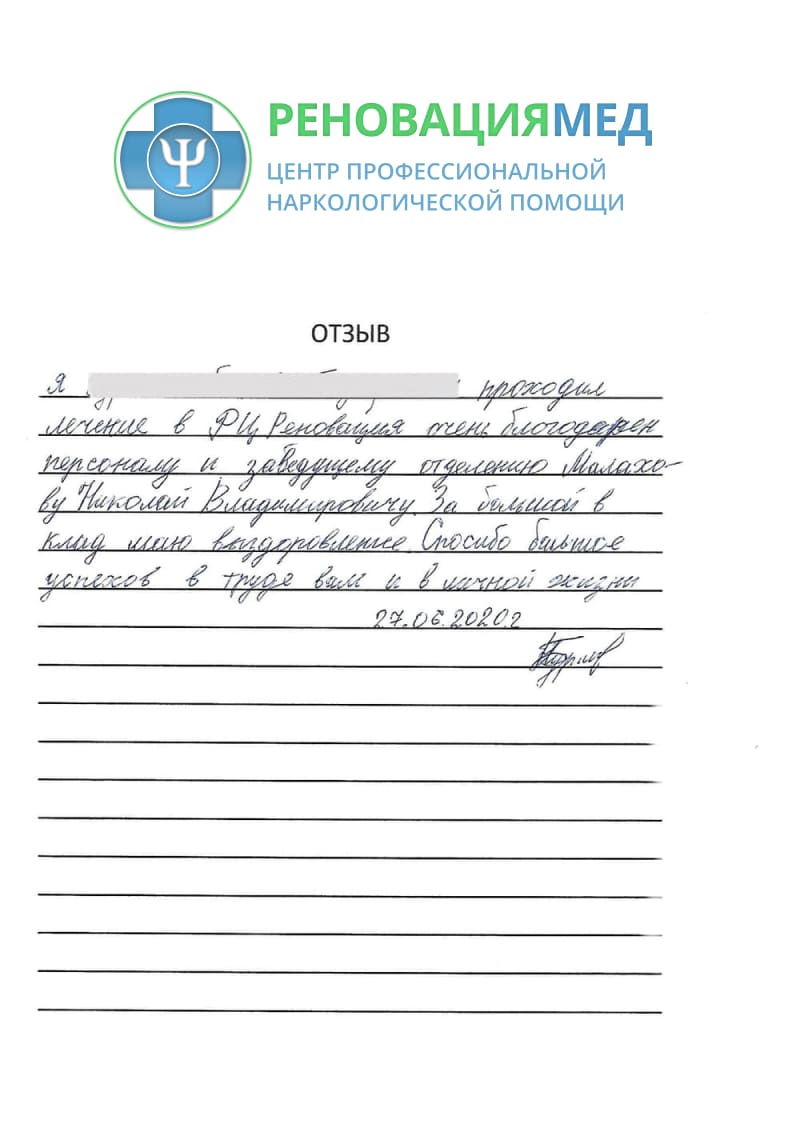 РЕНОВАЦИЯМЕД
ЦЕНТР ПРОФЕССИОНАЛЬНОЙ
НАРКОЛОГИЧЕСКОЙ ПОМОЩИ
ОТЗЫВ
Я проходил
лечение в РЦ Реновация очень благодарен
персоналу и заведущему отделению Малахо-
ву Николай Владимировичу. За большой в
клад маю выздоровление. Спосибо большое
успехов в труде вам и в личной жизни
27.06.2020г